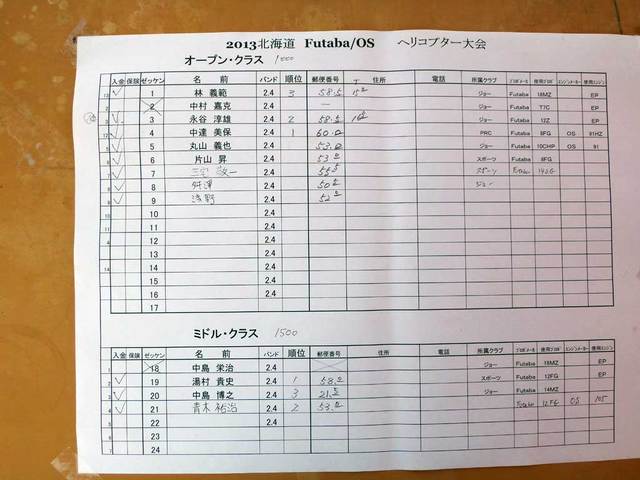 2013北海道 Futaba/OS ヘリコプター大会
オープン・クラス 1000
入金 保険 ゼッケン 名前 バンド 順位 郵便番号 〒 住所 電話 所属クラブ ﾌﾟﾛﾎﾟﾒｰｶ 使用ﾌﾟﾛﾎﾟ ｴﾝｼﾞﾝﾒｰｶｰ 使用ｴﾝｼﾞﾝ
1 林 義範 2.4 3 58.5 ジョー Futaba 18MZ EP
2 中村 嘉克 2.4 — ジョー Futaba T7C EP
3 永谷 淳雄 2.4 2 58.5 ジョー Futaba 12Z EP
4 中達 美保 2.4 1 60.0 PRC Futaba 8FG OS 91HZ
5 丸山 義也 2.4 53.0 ジョー Futaba 10CHP OS 91
6 片山 昇 2.4 53.0 スポーツ Futaba 8FG
7 三宅 敬一 2.4 55.5 スポーツ Futaba 14SG
8 2.4 50.5 ジョー
9 浅野 2.4 52.5
10 2.4
11 2.4
12 2.4
13 2.4
14 2.4
15 2.4
16 2.4
17
ミドル・クラス 1500
入金 保険 ゼッケン 名前 バンド 順位 郵便番号 住所 電話 所属クラブ ﾌﾟﾛﾎﾟﾒｰｶ 使用ﾌﾟﾛﾎﾟ ｴﾝｼﾞﾝﾒｰｶｰ 使用ｴﾝｼﾞﾝ
18 中島 栄治 2.4 ジョー Futaba 18MZ EP
19 湯村 貴史 2.4 1 58.0 スポーツ Futaba 12FG EP
20 中島 博之 2.4 3 21.5 ジョー Futaba 14MZ
21 青木 裕治 2.4 2 53.0 Futaba 12FG OS 105
22 2.4
23
24